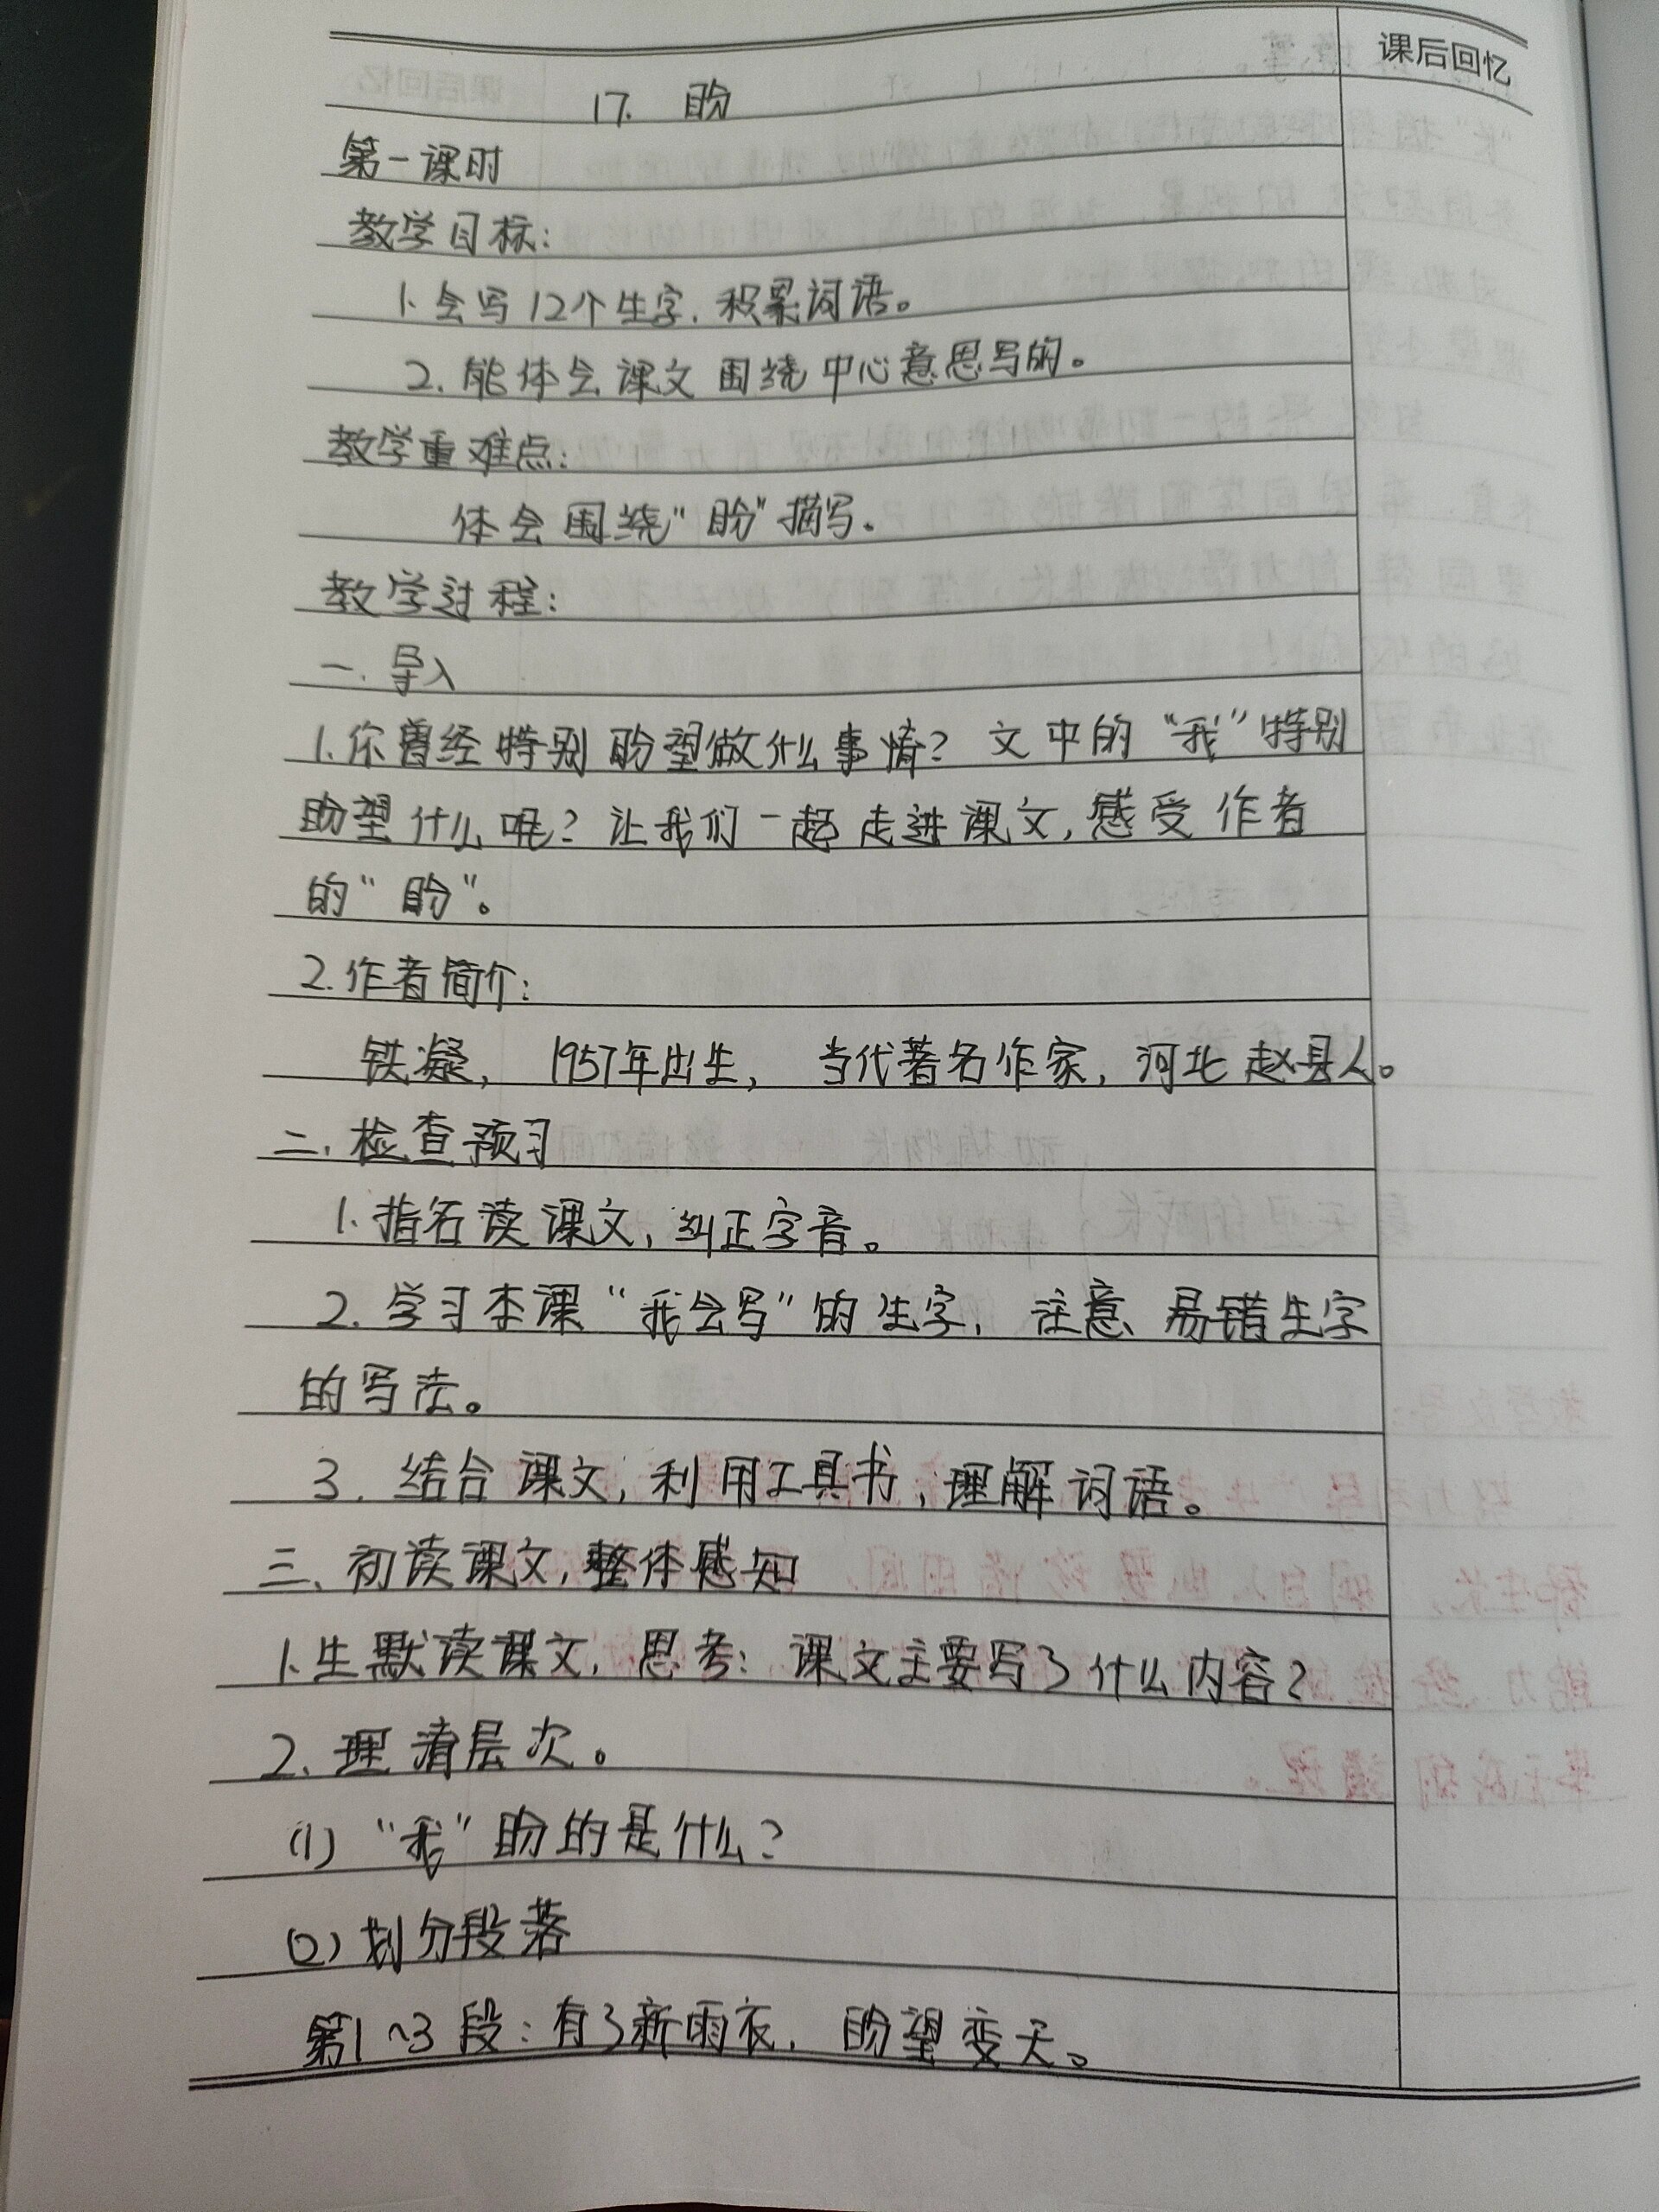 课后回忆
17. 盼
第一课时
教学目标:
1. 会写12个生字,积累词语。
2. 能体会课文围绕中心意思写的。
教学重难点:
体会围绕“盼”描写.
教学过程:
一. 导入
1. 你曾经特别盼望做什么事情? 文中的“我”特别
盼望什么呢? 让我们一起走进课文, 感受作者
的“盼”。
2. 作者简介:
铁凝, 1957年出生, 当代著名作家, 河北赵县人。
二. 检查预习
1. 指名读课文, 纠正字音。
2. 学习本课“我会写”的生字, 注意易错生字
的写法。
3. 结合课文, 利用工具书, 理解词语。
三、初读课文, 整体感知
1. 生默读课文, 思考: 课文主要写了什么内容?
2. 理清层次。
(1) “我”盼的是什么?
(2) 划分段落
第1~3段: 有了新雨衣, 盼望变天。